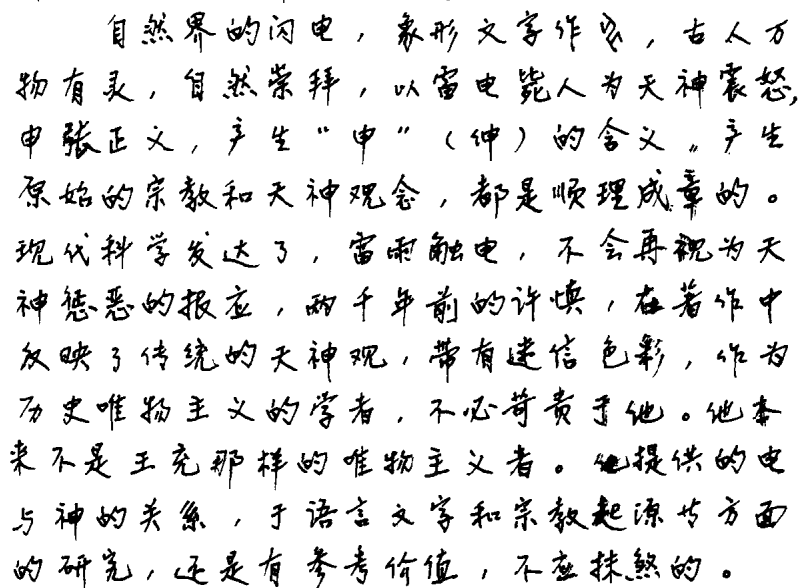 自然界的闪电，象形文字作，古人万
物有灵，自然崇拜，以雷电毙人为天神震怒，
申张正义，产生“申”（绅）的含义。产生
原始的宗教和天神观念，都是顺理成章的。
现代科学发达了，雷雨触电，不会再视为天
神惩恶的报应，两千年前的许慎，在著作中
反映了传统的天神观，带有迷信色彩，作为
历史唯物主义的学者，不必苛责于他。他本
来不是王充那样的唯物主义者。他提供的电
与神的关系，于语言文字和宗教起源等方面
的研究，还是有参考价值，不应抹煞的。